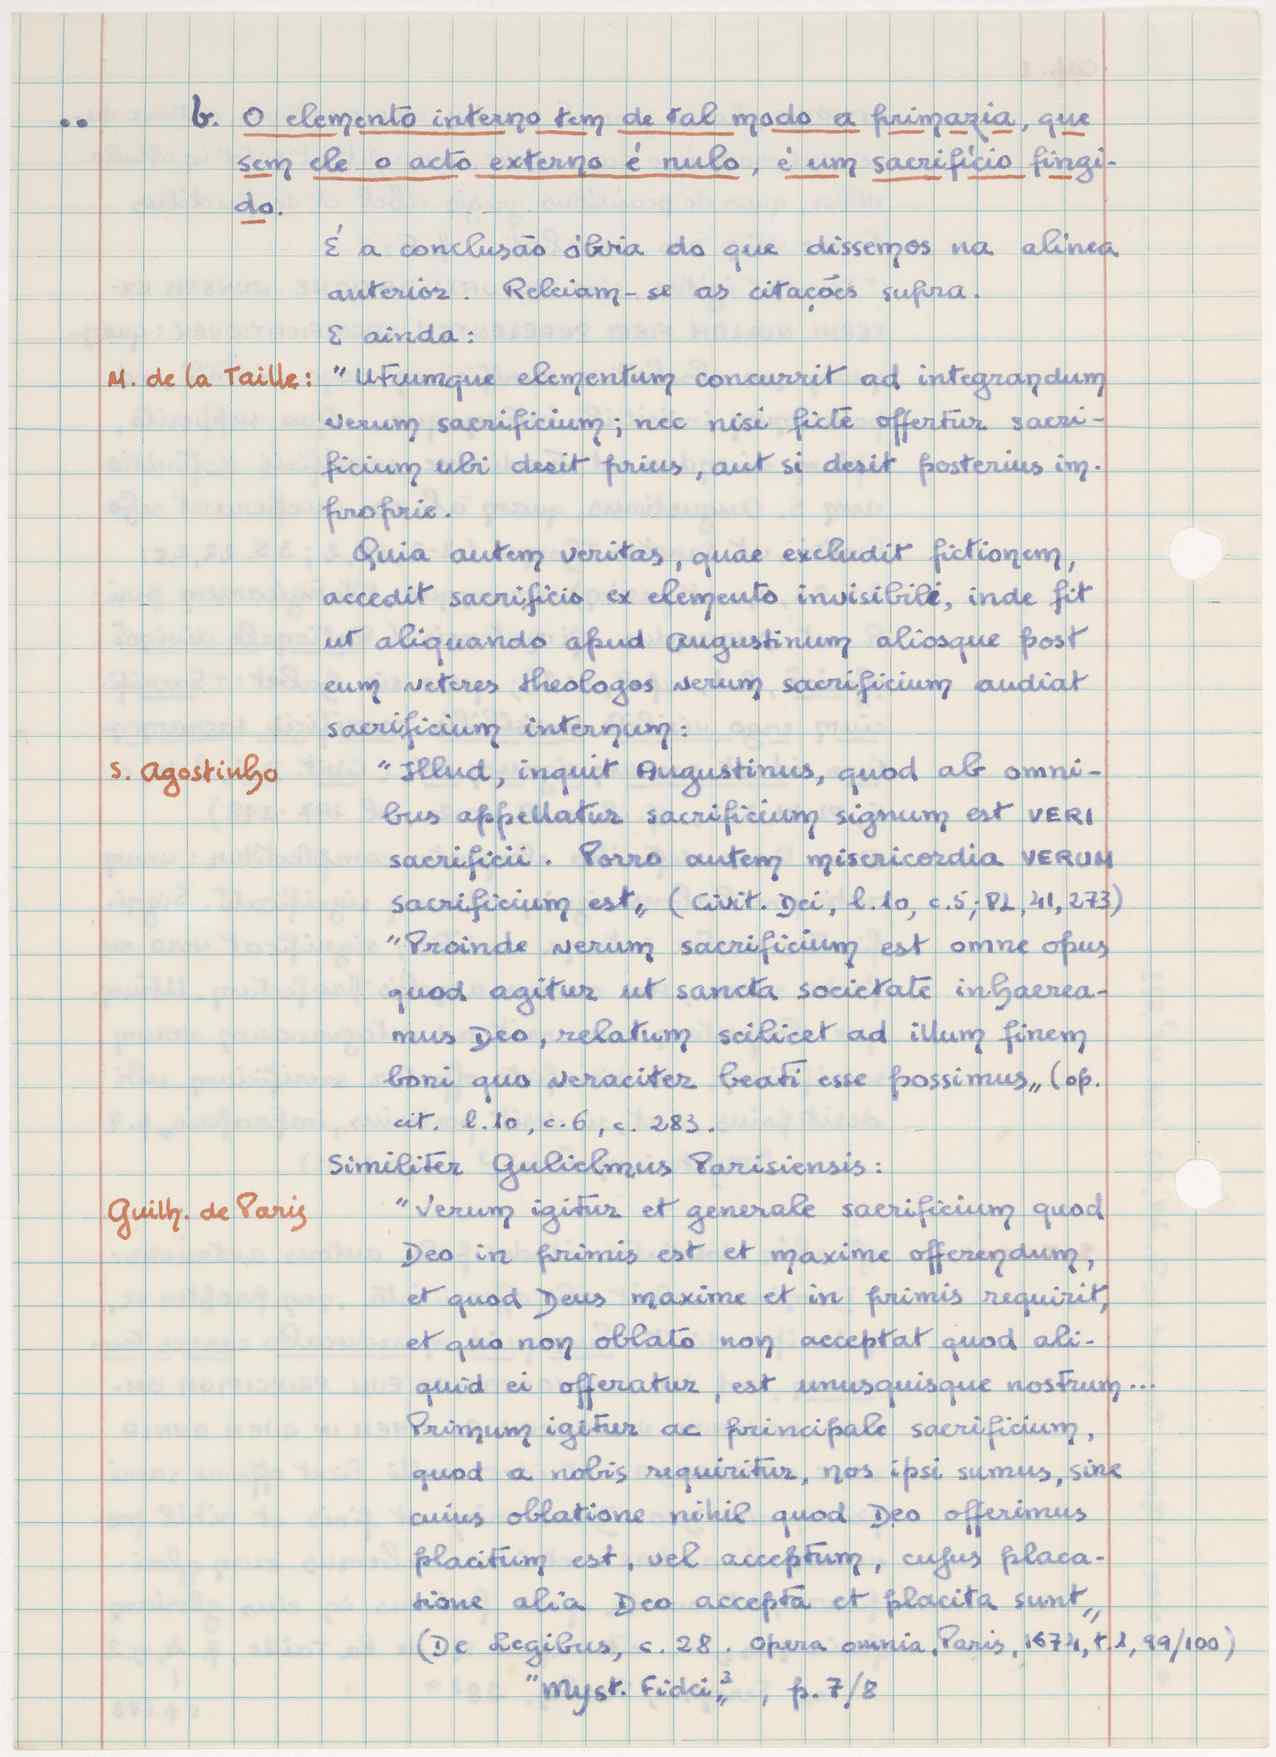 .. b. O elemento interno tem de tal modo a primazia, que
sem ele o acto externo é nulo, é um sacrifício fingi-
do.
É a conclusão óbvia do que dissemos na alínea
anterior. Releiam-se as citações supra.
E ainda:
M. de la Taille: "Utrumque elementum concurrit ad integrandum
verum sacrificium; nec nisi ficte offertur sacri-
ficium ubi desit prius, aut si desit posterius im-
proprie.
Quia autem veritas, quae excludit fictionem,
accedit sacrificio ex elemento invisibili, inde fit
ut aliquando apud Augustinum aliosque post
eum veteres theologos verum sacrificium audiat
sacrificium internum:
S. Agostinho "Illud, inquit Augustinus, quod ab omni-
bus appellatur sacrificium signum est VERI
sacrificii. Porro autem misericordia VERUM
sacrificium est„ (Civit. Dei, l.10, c.5; PL, 41, 273)
"Proinde verum sacrificium est omne opus
quod agitur ut sancta societate inhaerea-
mus Deo, relatum scilicet ad illum finem
boni quo veraciter beati esse possimus„ (op.
cit. l.10, c.6, c. 283.
Similiter Gulielmus Parisiensis:
Guilh. de Paris "Verum igitur et generale sacrificium quod
Deo in primis est et maxime offerendum,
et quod Deus maxime et in primis requirit,
et quo non oblato non acceptat quod ali-
quid ei offeratur, est unusquisque nostrum...
Primum igitur ac principale sacrificium,
quod a nobis requiritur, nos ipsi sumus, sine
cuius oblatione nihil quod Deo offerimus
placitum est, vel acceptum, cujus placa-
tione alia Deo accepta et placita sunt„
(De Legibus, c. 28. Opera omnia, Paris, 1674, t.1, 99/100)
"Myst. Fidei„³, p. 7/8